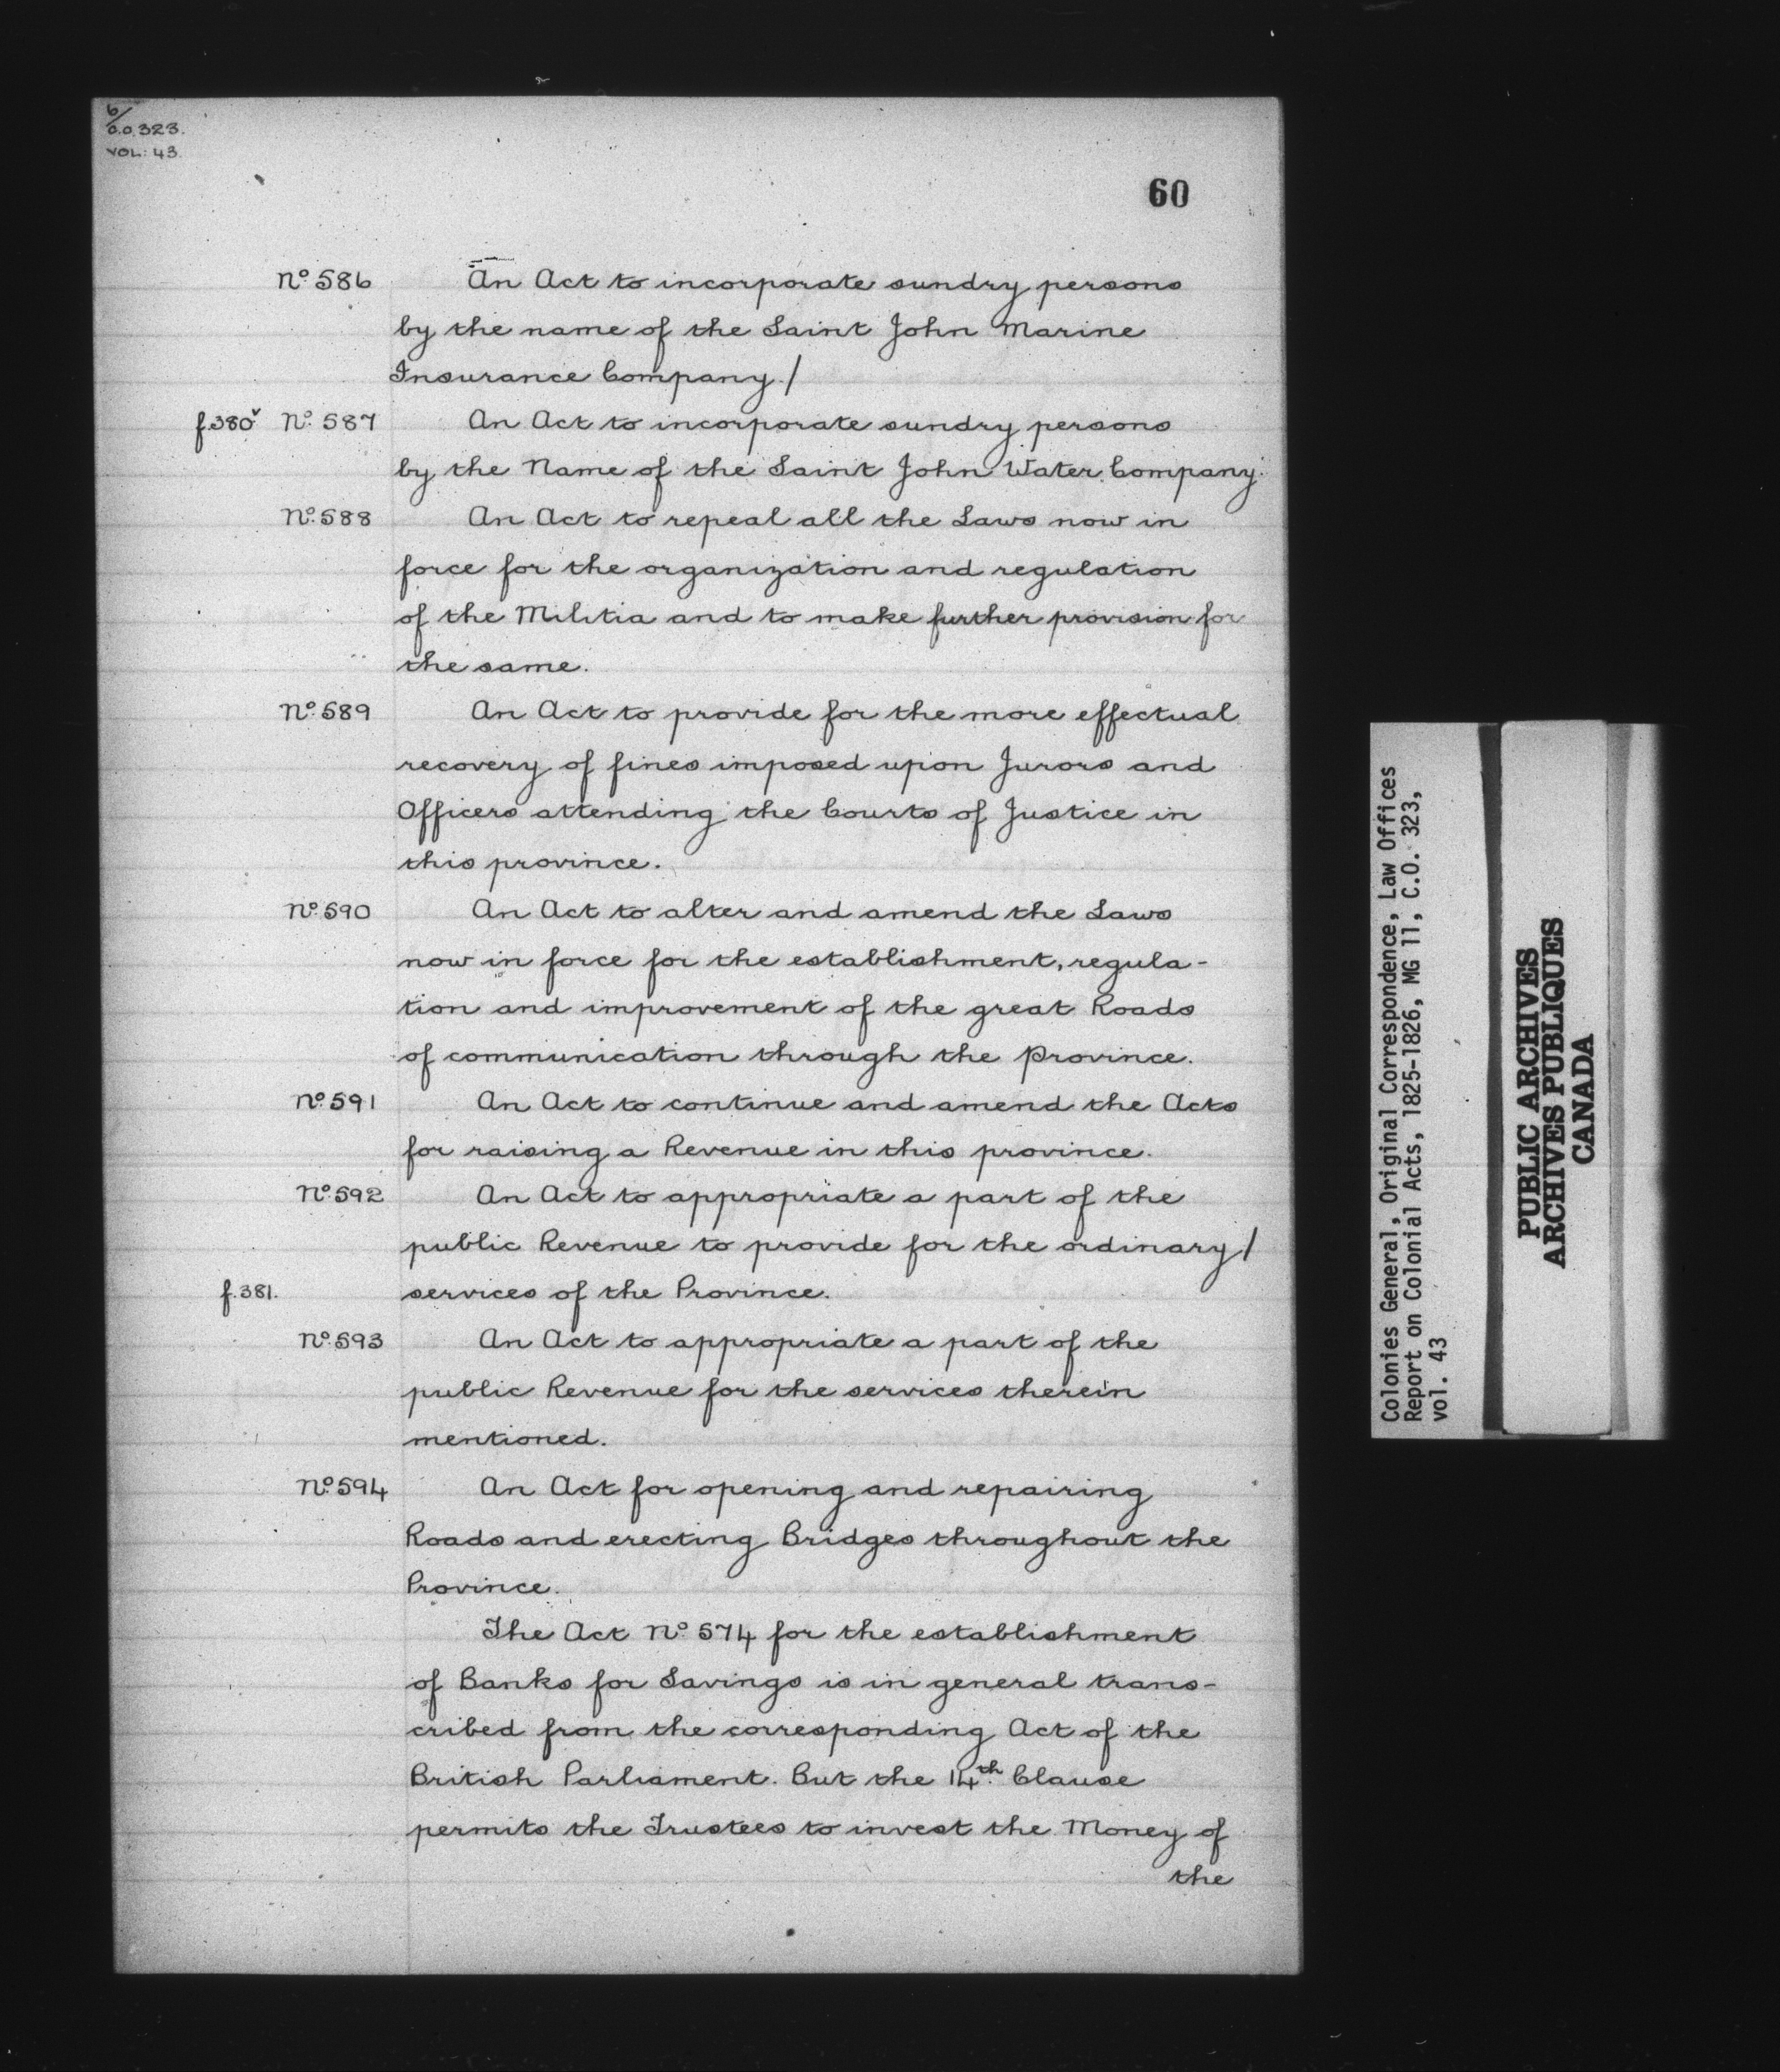 6/
C.O. 323.
VOL: 43.
60
No. 586 An Act to incorporate sundry persons
by the name of the Saint John Marine
Insurance Company./
f.380v No. 587 An Act to incorporate sundry persons
by the Name of the Saint John Water Company.
No. 588 An Act to repeal all the Laws now in
force for the organization and regulation
of the Militia and to make further provision for
the same.
No. 589 An Act to provide for the more effectual
recovery of fines imposed upon Jurors and
Officers attending the Courts of Justice in
this province.
No. 590 An Act to alter and amend the Laws
now in force for the establishment, regula-
tion and improvement of the great Roads
of communication through the Province.
No. 591 An Act to continue and amend the Acts
for raising a Revenue in this province.
No. 592 An Act to appropriate a part of the
public Revenue to provide for the ordinary/
f.381. services of the Province.
No. 593 An Act to appropriate a part of the
public Revenue for the services therein
mentioned.
No. 594 An Act for opening and repairing
Roads and erecting Bridges throughout the
Province.
The Act No. 574 for the establishment
of Banks for Savings is in general trans-
cribed from the corresponding Act of the
British Parliament. But the 14th. Clause
permits the Trustees to invest the Money of
the
Colonies General, Original Correspondence, Law Offices
Report on Colonial Acts, 1825-1826, MG 11, C.O. 323,
vol. 43
PUBLIC ARCHIVES
ARCHIVES PUBLIQUES
CANADA